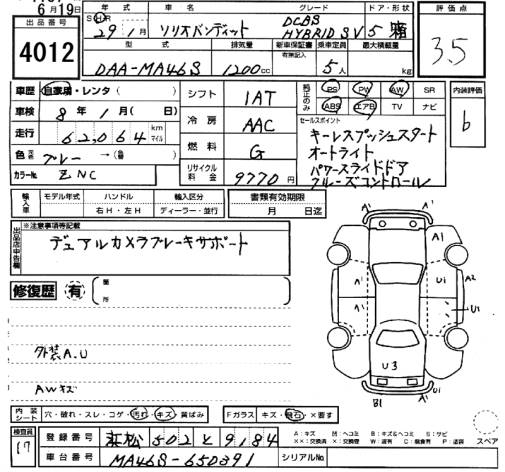 6月19日
出品番号
4012
年式 車名 グレード ドア・形状 評価点
29年 1月 ソリオバンディット DCBS HYBRID SV 5 3.5
型式 排気量 新車保証書 有無記入 乗車定員 最大積載量
DAA-MA46S 1200cc 5人 kg
車歴 自家用・レンタ( )
車検 8年1月( 日)
走行 62,064 km マイル
色 ブルー →( )
カラーNo. ZNC
シフト 1AT
冷房 AAC
燃料 G
リサイクル料金 9770円
純正のみ
PS PW AW SR
ABS エアB TV ナビ
内装評価
b
セールスポイント
キーレスプッシュスタート
オートライト
パワースライドドア
クルーズコントロール
輸入車 モデル年式 ハンドル 輸入区分 書類有効期限
右H・左H ディーラー・並行 月 日迄
出品店申告欄 ※注意事項等記載
デュアルカメラブレーキサポート
修復歴 有 箇所
外装A.U
AWキズ
A1 A1
A1 A1 A2
A1 U1 U1
U3
A1 A1
B1
内装シート 穴・破れ・スレ・コゲ・汚れ・キズ・黄ばみ
Fガラス キズ・飛石・×要す
検査員 17
登録番号 浜松502と9184
車台番号 MA46S-650391 シリアルNo.
A:キズ M:ヘコミ B:キズ&ヘコミ S:サビ
××:交換済 ×:交換要 W:波有 C:腐食有 P:塗装
スペア